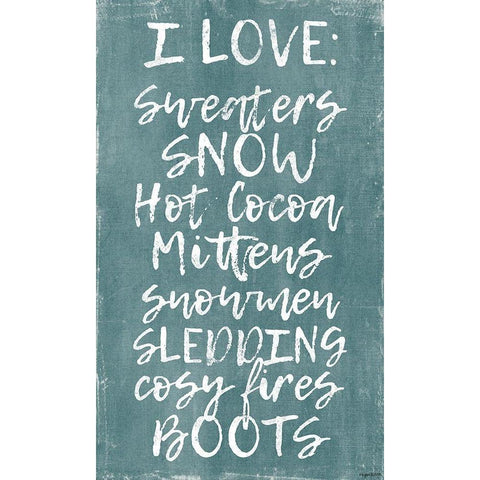 I LOVE:
Sweaters
SNOW
Hot Cocoa
Mittens
snowmen
SLEDDING
cosy fires
BOOTS